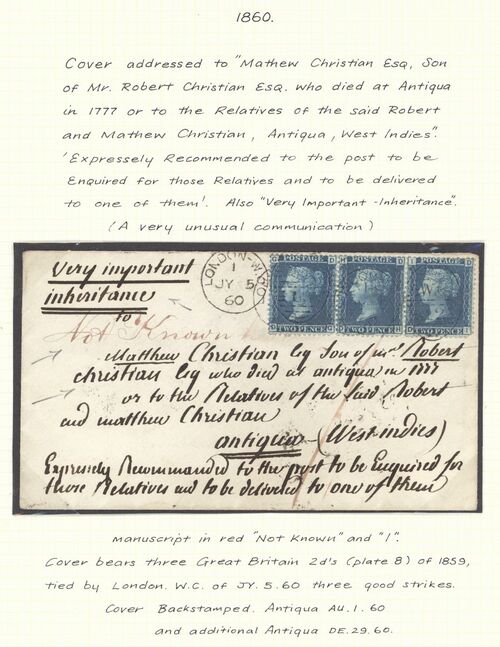 1860.
Cover addressed to "Mathew Christian Esq, Son
of Mr. Robert Christian Esq. who died at Antigua
in 1777 or to the Relatives of the said Robert
and Mathew Christian, Antigua, West Indies".
'Expressely Recommended to the post to be
Enquired for those Relatives and to be delivered
to one of them'. Also "Very Important - Inheritance".
(A very unusual communication)
Very important
inheritance
to
Not Known
LONDON-W.C
1
JY 5
60
POSTAGE POSTAGE POSTAGE
TWO PENCE TWO PENCE TWO PENCE
Matthew Christian Esq Son of Mr. Robert
Christian Esq who died at antigua in 1777
or to the Relatives of the Said Robert
and matthew Christian
antigua (West indies)
Expressely Recommanded to the post to be Enquired for
those Relatives and to be delivered to one of them
manuscript in red "Not Known" and "1".
Cover bears three Great Britain 2d's (plate 8) of 1859,
tied by London. W.C. of JY. 5. 60 three good strikes.
Cover Backstamped. Antigua AU. 1. 60
and additional Antigua DE. 29. 60.